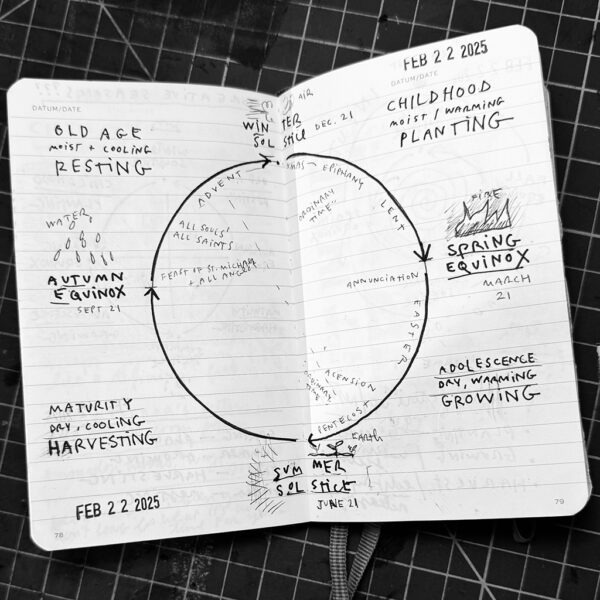 DATUM/DATE
OLD AGE
MOIST + COOLING
RESTING
WATER
AUTUMN
EQUINOX
SEPT 21
MATURITY
DRY, COOLING
HARVESTING
FEB 22 2025
78
AIR
WINTER
SOLSTICE DEC. 21
ADVENT
XMAS
EPIPHANY
LENT
"ORDINARY
TIME"
ALL SOULS'
ALL SAINTS
FEAST OF ST. MICHAEL
+ ALL ANGELS
ANNUNCIATION
EASTER
ACENSION
ORDINARY
TIME
PENTECOST
EARTH
SUMMER
SOLSTICE
JUNE 21
FEB 22 2025
DATUM/DATE
CHILDHOOD
MOIST / WARMING
PLANTING
FIRE
SPRING
EQUINOX
MARCH
21
ADOLESCENCE
DRY, WARMING
GROWING
79